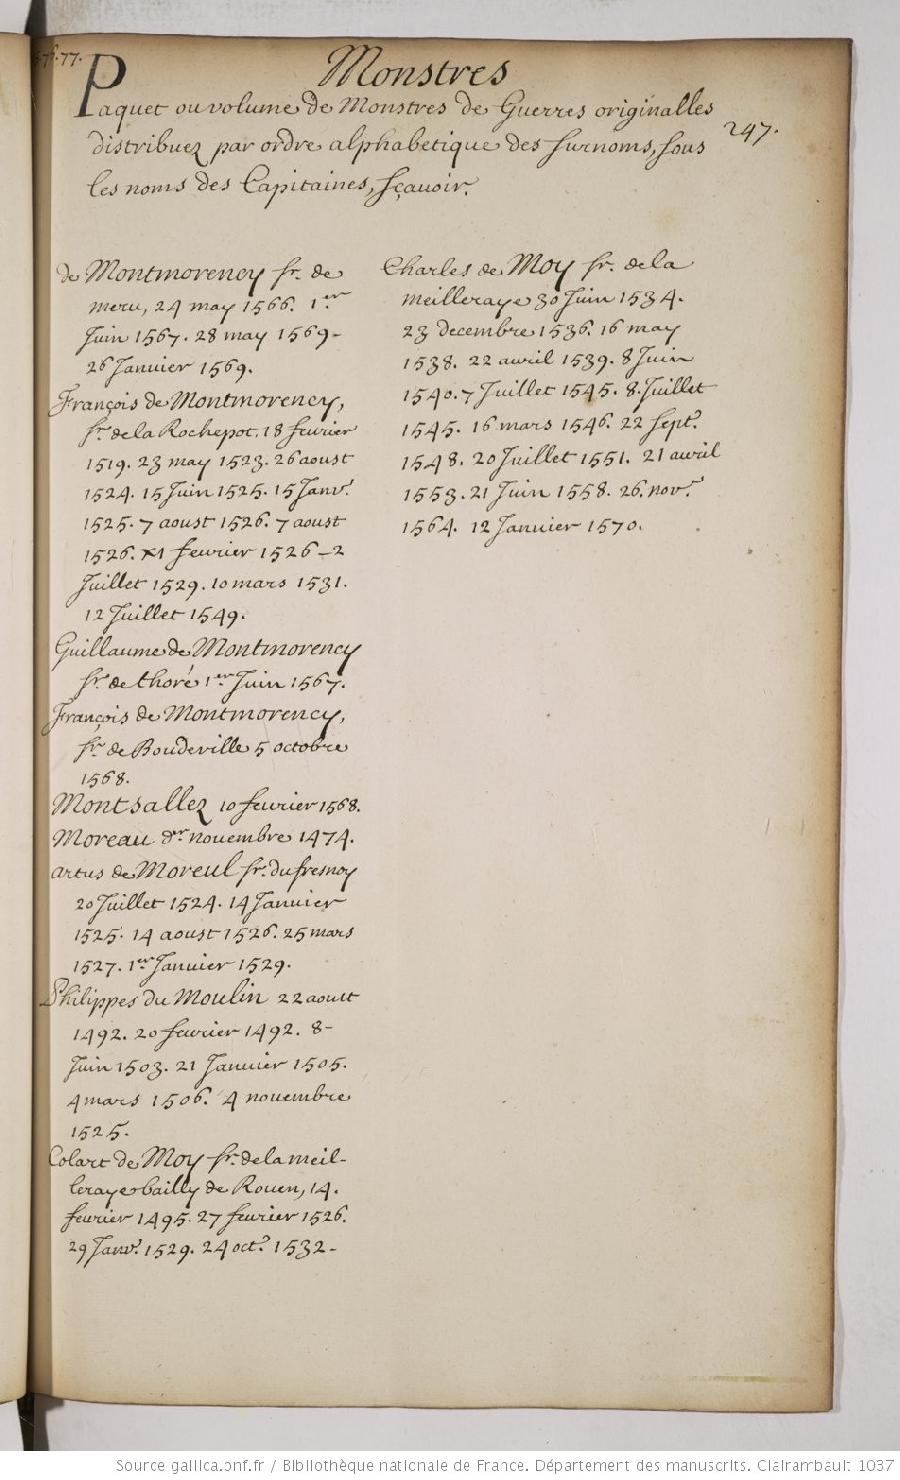 77.
Monstres
Paquet ou volume de Monstres de Guerres originalles
247.
distribuez par ordre alphabetique des surnoms, sous
les noms des Capitaines, sçavoir.
de Montmorency sr. de
meru, 24 may 1566. 1.er
Juin 1567. 28 may 1569-
26 Janvier 1569.
François de Montmorency,
sr. de la Rochepot. 18 fevrier
1519. 23 may 1523. 26 aoust
1524. 15 Juin 1525. 15 Janv.r
1525. 7 aoust 1526. 7 aoust
1526. XI fevrier 1526-2
Juillet 1529. 10 mars 1531.
12 Juillet 1549.
Guillaume de Montmorency
sr. de thoré 1.er Juin 1567.
François de Montmorency,
sr. de Boudeville 5 octobre
1568.
Montsallez 10 fevrier 1568.
Moreau d.er novembre 1474.
artus de Moreul sr. du fresnoy
20 Juillet 1524. 14 Janvier
1525. 14 aoust 1526. 25 mars
1527. 1.er Janvier 1529.
Philippes du Moulin 22 aoust
1492. 20 fevrier 1492. 8-
Juin 1503. 21 Janvier 1505.
4 mars 1506. 4 novembre
1525.
Colart de Moy sr. de la meil-
leraye bailly de Rouen, 14.
fevrier 1495. 27 fevrier 1526.
29 Janv.r 1529. 24 oct.e 1532-
Charles de Moy sr. de la
meilleraye 30 Juin 1534.
23 decembre 1536. 16 may
1538. 22 avril 1539. 8 Juin
1540. 7 Juillet 1545. 8. Juillet
1545. 16 mars 1546. 22 sept.e
1548. 20 Juillet 1551. 21 avril
1553. 21 Juin 1558. 26. nov.e
1564. 12 Janvier 1570.
Source gallica.bnf.fr / Bibliothèque nationale de France. Département des manuscrits. Clairambault 1037